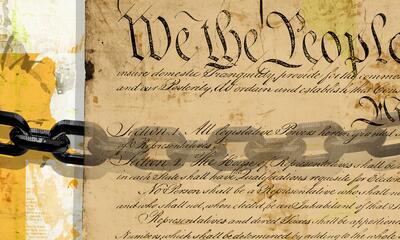 We the People
insure domestic Tranquility, provide for the common
and our Posterity, do ordain and establish this
Section 1. All legislative Powers herein granted
of Representatives.
Section 2. The House of Representatives shall be
in each State shall have Qualifications requisite for Electors
No Person shall be a Representative who shall not
and who shall not, when elected, be an Inhabitant of that
Representatives and direct Taxes shall be apportioned
Numbers, which shall be determined by adding to the whole